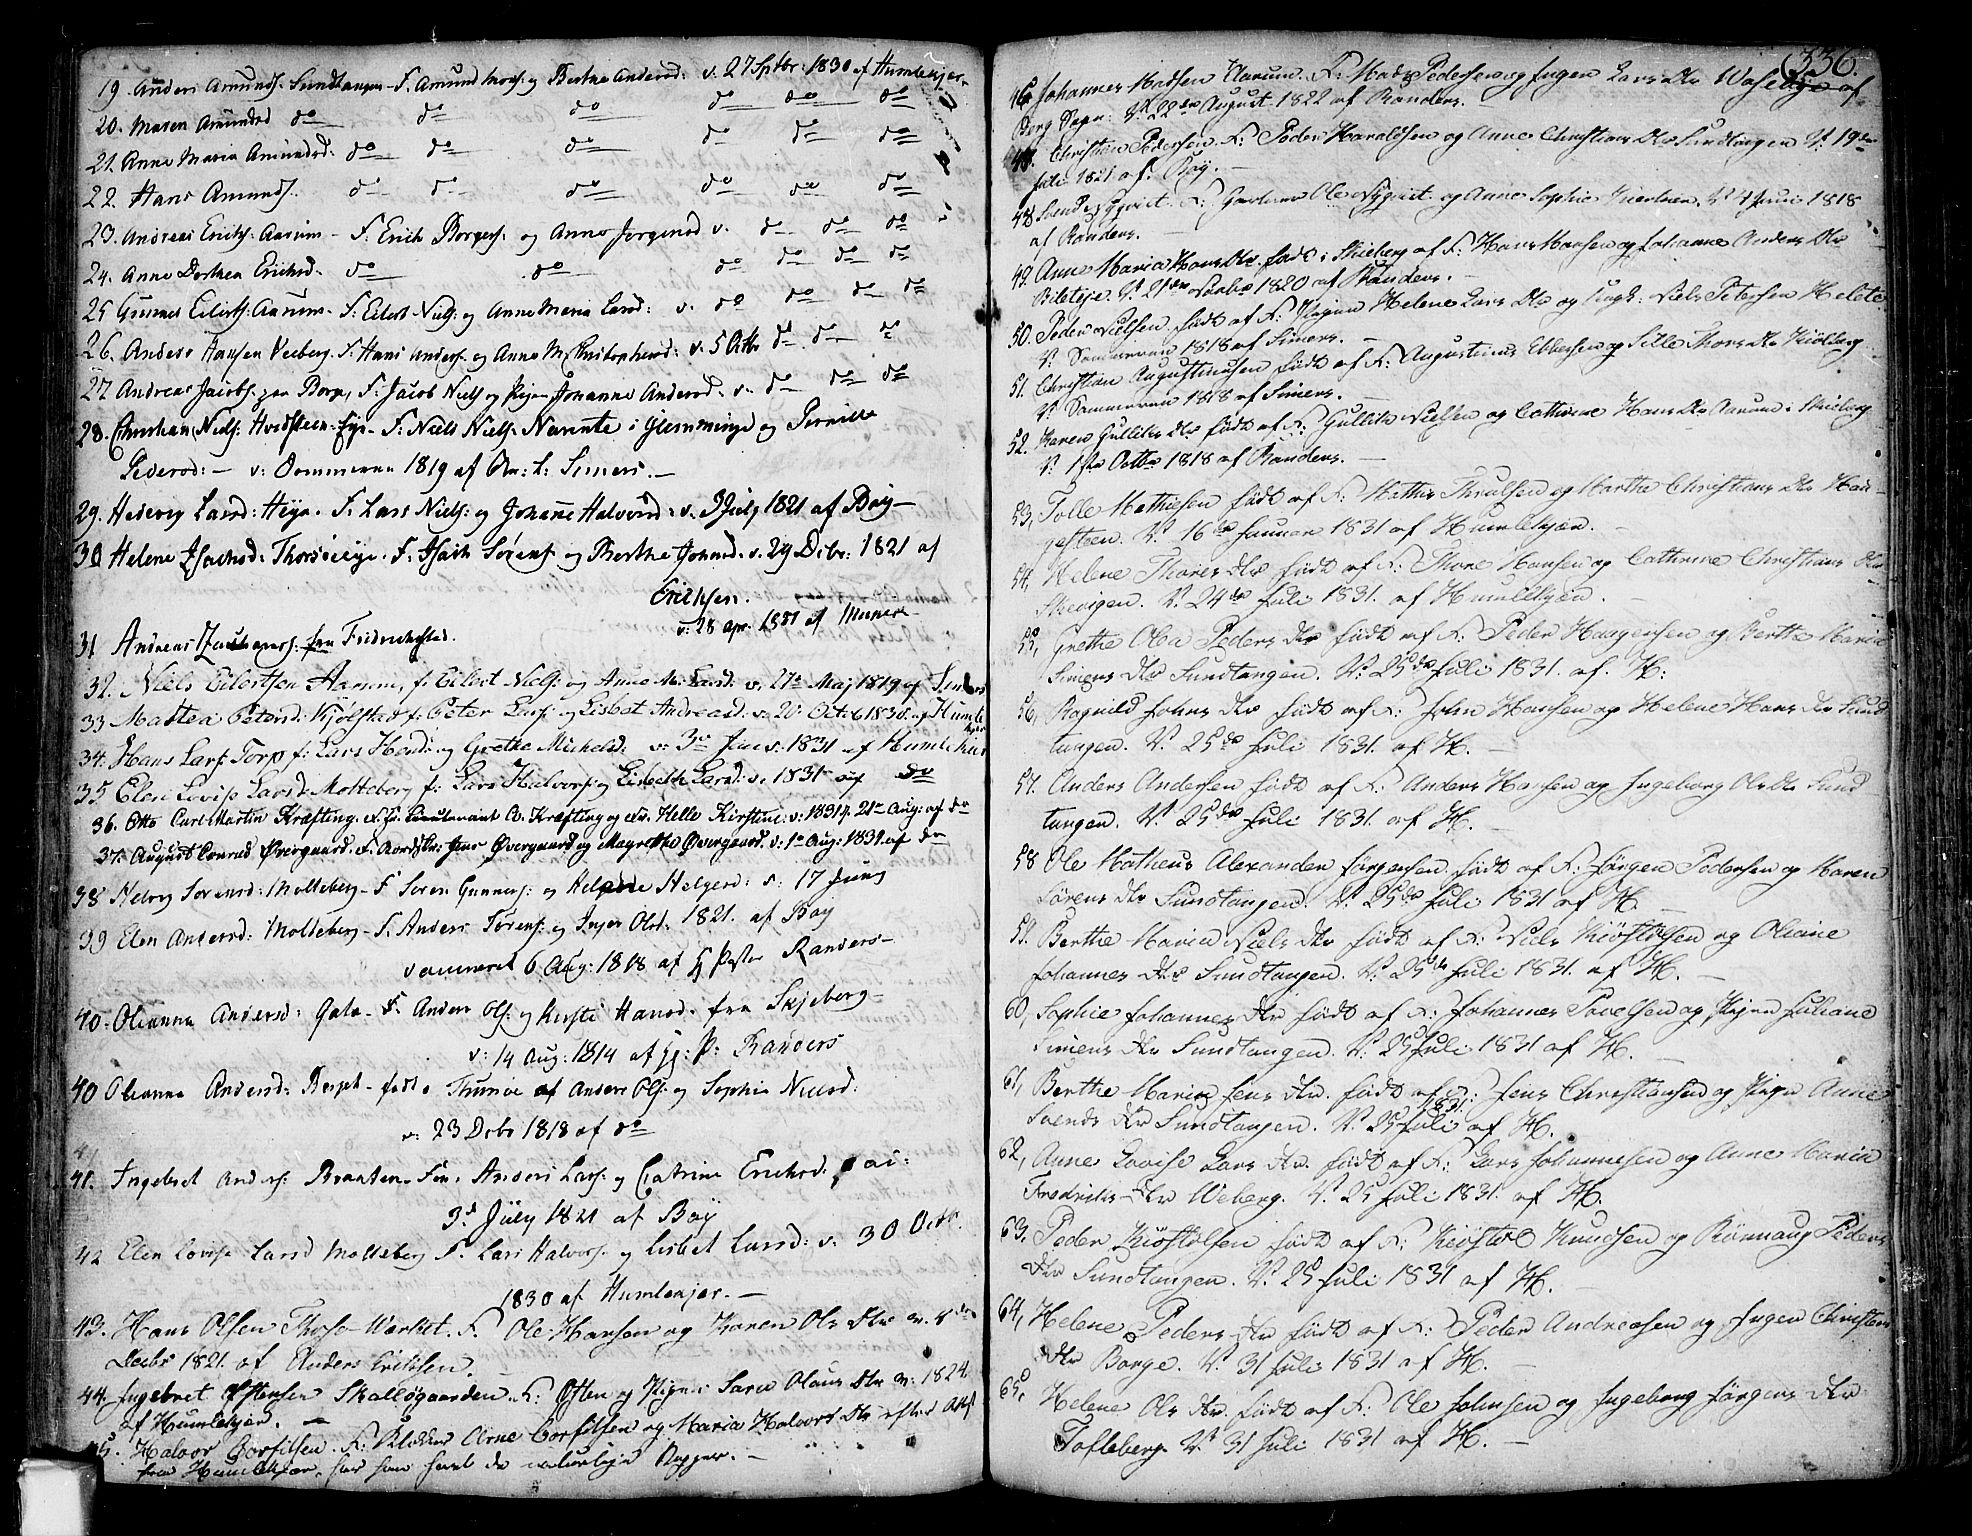 19. Anders Amunds: Sundtangen - F. Amund Mons: og Berthe Andersd: v. 27 Sptbr: 1830 af Humlekjær
20. Maren Amundsd do do do do do do
21. Anne Maria Amundsd: do do do do do do
22. Hans Amunds: do do do do do do
23. Andreas Erichs: Aarum - F. Erich Borgers: og Anne Jørgensd v. do do do
24. Anne Dorthea Erichsd. do do do do do do
25 Gunner Eilerts: Aarum - F. Eilert Niels: og Anne Maria Larsd: v. do do do do
26. Anders Hansen Veeberg. F. Hans Anders: og Anne M. Christophersd: v. 5 Octbr do do do
27 Andreas Jacobs: paa Borge, F. Jacob Niels: og Pigen Johanne Andersd - v. do do do
28. Christian Niels: Hvidsteen-Eye - F. Niels Niels: Narente i Glemminge og Pernille
Pedersd: - v: Sommeren 1819 af Chr: L: Simers. -
29. Hedevig Larsd: Heye - F. Lars Niels: og Johanne Halvorsd: v. 3 July 1821 af Bøy -
30 Helene Isachsd: Thorsøeeye. F. Isach Sørens: og Berthe Johnsd. v. 29 Debr: 1821 af
Erichsen.
v. 28 apr. 1831 af
31 Andreas fra Fredrichsstad.
32. Niels Eilertsen Aarum, f. Eilert Niels: og Anne M. Larsd: v. 27 Maj 1819 af Simers
33 Mattea Petersd: Kjølstad f. Peter Lars: og Lisbet Andreasd: v. 20 Octob 1830. af Humle
kjær
34. Hans Lars: Torp f: Lars Hans: og Grethe Michelsd: v: 3 Janv: 1831 af Humlekiær
35 Elen Lovise Larsd. Molteberg f: Lars Halvors: og Lisbeth Larsd: v. 1831 af do
36. Otto Carl Martin Krefting. f. F. Lieutenant O. Krefting og Helle Kirstine: v: 1831. 21 Aug: af do
37. August Conrad Øvergaard. F. Jens Øvergaard og Magrethe Øvergaard. v: 1 Aug: 1831. af do
38 Helvig Sørensd: Molteberg - F Søren Gunners: og Helgesd: v: 17 Juny
39 Elen Andersd: Molteberg - F. Anders Tørers: og Inger Olsd: 1821. af Bøy
vaccineret 6 Aug: 1818 af Hr Pastor Randers -
40. Oleanna Andersd: Gata - F. Anders Ols: og Kirsti Hansd: fra Skjeberg -
v: 14 Aug: 1814 af Hr: P: Randers
40 Oleanna Andersd: født i Thunøe af Anders Ols: og Sophia Nielsd:
v: 23 Debr 1818 af do
41. Ingebret Anders: Braaten - For: Anders Lars: og Catrine Erichsd:
3d July 1821 af Bøy
42 Elen Lovise Larsd Molteberg F. Lars Halvors: og Lisbet Larsd: v. 30 Octb.
1830 af Humlekjær. -
43. Hans Olsen Thosø-Værket. F. Ole Hansen og Karen Ols Dtr v. 8de
Decbr 1821. af Anders Erichsen.
44. Ingebret Østensen Skalløgaarden. F: Østen og Pigen Sara Olaus Dtr v: 1824
af Humlekjær. -
45. Halvor Torfilsen. F: Arne Torfilsen og Maria Halvors Dtr efter Attest
fra Humlekjær, har han havt de naturlige Kopper. -
336.
46 Johannes Madsen Aarum. F: Mads Pedersen og Ingen Lars Dtr af
Borg Sogn: V: 22de August 1822 af Randers.
47. Christian Pedersen. F: Peder Haraldsen og Anne Christians Dtr Sundtangen V: 19de
Juli 1821 af Bøy. -
48 Svend Nyqvist. F: Ole Nyqvist og Anne Sophie V: 4 Juni 1818
af Randers. -
49. Anne Maria Hans Dtr født i Skieberg af F: Hans Hansen og Johanne Anders Dtr
Bileteje. V: 21de Novbr 1820 af Randers.
50. Peder Nielsen født af F: Pigen Helene Lars Dtr og Ungk: Niels Petersen
V: Sommeren 1818 af Simers. -
51. Christian Augustinusen født af F: Augustinus Ebbesen og Sille Thors Dtr Kiølberg
V: Sommeren 1818 af Simers. -
52. Karen Gulliks Dtr født af F: Gullik Nielsen og Cathrine Hans Dtr Aarum i Skieberg
V: 1ste Octbr 1818 af Randers. -
53, Tolle Mathiesen født af F: Mathis Thrulsen og Marthe Christians Dtr Hau-
gesteen. V: 16de Januar 1831 af Humlekjær. -
54, Helene Thores Dtr født af F: Thore Hansen og Cathrine Christians Dtr
Skevigen. V: 24de Juli 1831. af Humlekjær. -
55, Grethe Olea Peders Dtr født af F: Peder Haagensen og Berthe Maria
Simens Dtr Sundtangen. V: 25de Juli 1831. af. H:
56, Ragnild Johns Dtr født af F: John Hansen og Helene Hans Dtr Sund
tangen. V: 25de Juli 1831. af H. -
57. Anders Andersen født af F: Anders Hansen og Ingeborg Ols Dtr Sund
tangen. V: 25de Juli 1831. af H. -
58 Ole Matheus Alexander Jørgensen. født af F: Jørgen Pedersen og Maren
Sørens Dtr Sundtangen. V: 25de Juli 1831 af H. -
59. Berthe Maria Niels Dtr født af F: Niels Kiøstelsen og Oliane
Johannes Dtr Sundtangen. V: 25de Juli 1831. af H. -
60, Sophie Johannes Dtr født af F: Johannes Povelsen og Pigen Juliane
Simens Dtr Sundtangen. V: 25 Juli 1831 af H. -
61, Berthe Maria Jens Dtr. født af F: Jens Christiansen og Pigen Anne
Svends Dtr Sundtangen. V: 25 Juli 1831. af H.
62, Anne Lovise Lars Dtr. født af F: Lars Johannesen og Anne Maria
Fredriks Dtr Weberg. V: 25 Juli 1831. af H.
63, Peder Kiøstølsen født af F: Kiøstel Knudsen og Rønnaug Peders
Dtr Sundtangen. V: 25 Juli 1831 af H. -
64, Helene Peders Dtr født af F: Peder Andreasen og Ingen Christens
Dtr Borge. V: 31 Juli 1831 af H. -
65, Helene Ols Dtr. født af F: Ole Johnsen og Ingeborg Jørgens Dtr
Tofleberg. V: 31 Juli 1831 af H. -